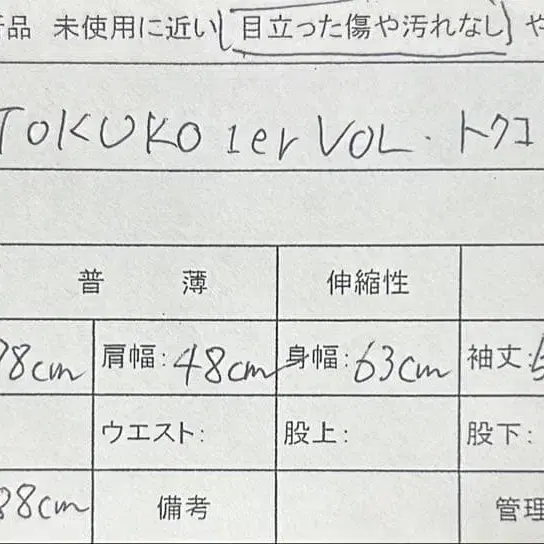 品 未使用に近い 目立った傷や汚れなし や
TOKUKO 1er VOL・トクコ
普 薄 伸縮性
98cm 肩幅:48cm 身幅:63cm 袖丈:
ウエスト: 股上: 股下:
88cm 備考 管理